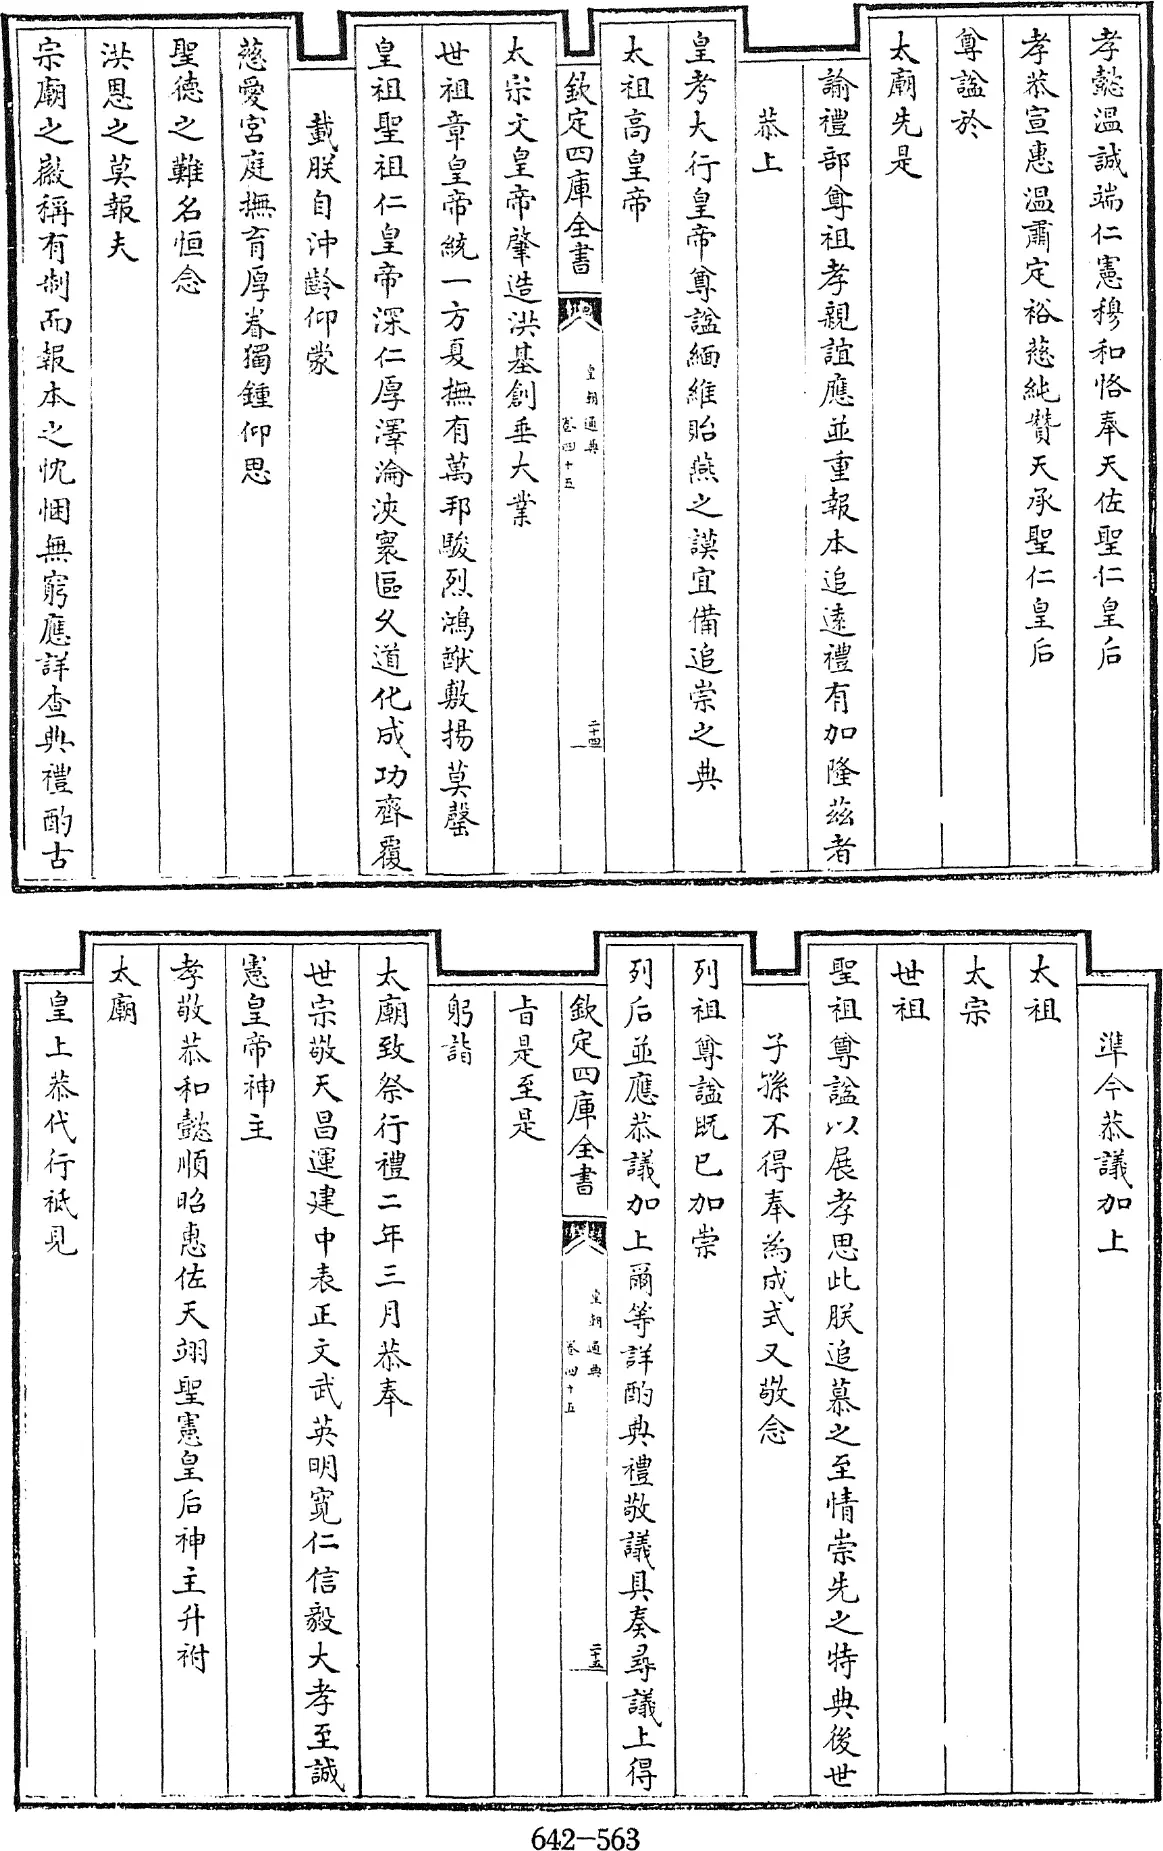 孝懿溫誠端仁憲穆和恪奉天佐聖仁皇后
孝恭宣惠溫肅定裕慈純贊天承聖仁皇后
尊諡於
太廟先是
諭禮部尊祖孝親誼應並重報本追遠禮有加隆茲者
恭上
皇考大行皇帝尊諡緬維貽燕之謨宜備追崇之典
太祖高皇帝
欽定四庫全書
皇朝通典
卷四十五
二十四
太宗文皇帝肇造洪基創垂大業
世祖章皇帝統一方夏撫有萬邦駿烈鴻猷敷揚莫罄
皇祖聖祖仁皇帝深仁厚澤淪浹寰區久道化成功齊覆
載朕自沖齡仰蒙
慈愛宮庭撫育厚眷獨鍾仰思
聖德之難名恒念
洪恩之莫報夫
宗廟之徽稱有制而報本之忱悃無窮應詳查典禮酌古
準今恭議加上
太祖
太宗
世祖
聖祖尊諡以展孝思此朕追慕之至情崇先之特典後世
子孫不得奉為成式又敬念
列祖尊諡既已加崇
列后並應恭議加上爾等詳酌典禮敬議具奏尋議上得
欽定四庫全書
皇朝通典
卷四十五
二十五
旨是至是
躬詣
太廟致祭行禮二年三月恭奉
世宗敬天昌運建中表正文武英明寬仁信毅大孝至誠
憲皇帝神主
孝敬恭和懿順昭惠佐天翊聖憲皇后神主升祔
太廟
皇上恭代行祗見
642-563